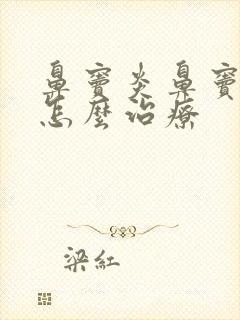 鼻窦炎鼻窦
怎麼治療
梁紅